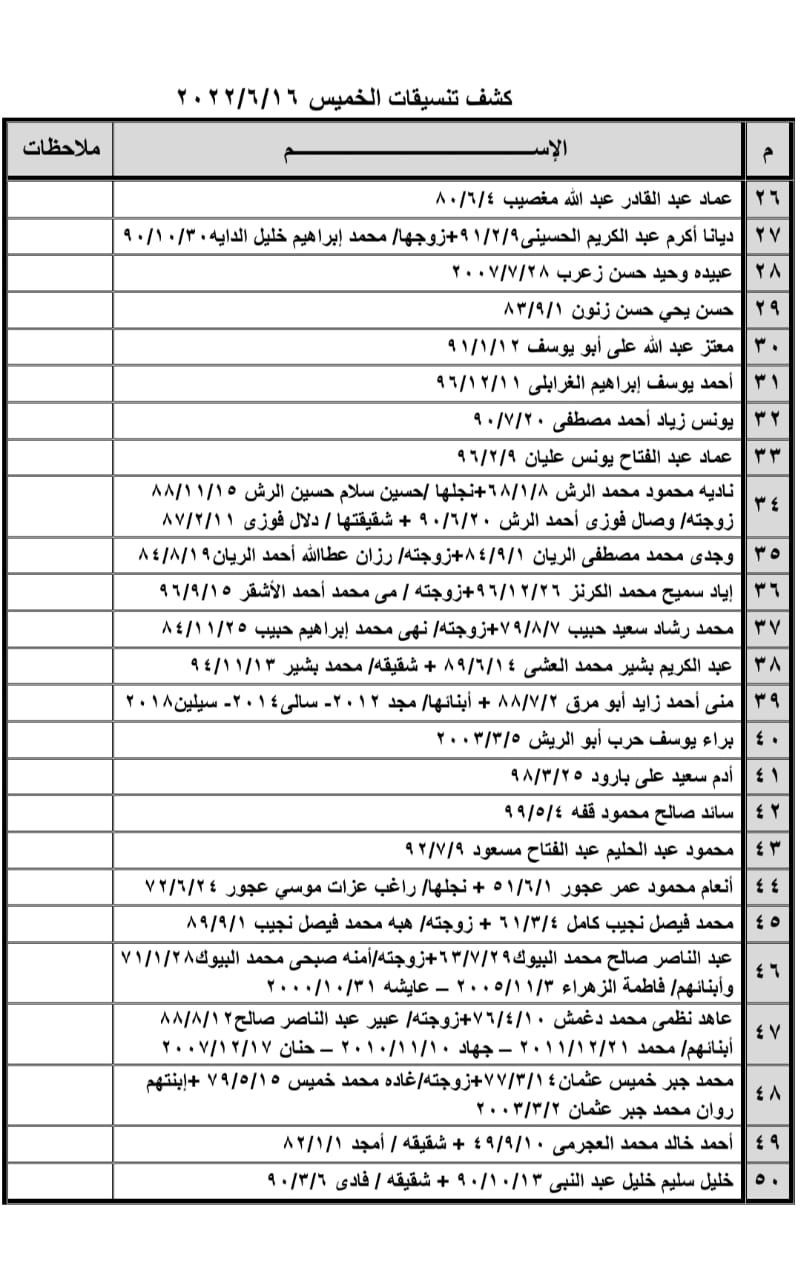 كشف تنسيقات الخميس ٢٠٢٢/٦/١٦
م الإســـــــــــم ملاحظات
٢٦ عماد عبد القادر عبد الله مغصيب ٨٠/٦/٤
٢٧ ديانا أكرم عبد الكريم الحسينى٩١/٢/٩+زوجها/ محمد إبراهيم خليل الدايه٩٠/١٠/٣٠
٢٨ عبيده وحيد حسن زعرب ٢٠٠٧/٧/٢٨
٢٩ حسن يحي حسن زنون ٨٣/٩/١
٣٠ معتز عبد الله على أبو يوسف ٩١/١/١٢
٣١ أحمد يوسف إبراهيم الغرابلى ٩٦/١٢/١١
٣٢ يونس زياد أحمد مصطفى ٩٠/٧/٢٠
٣٣ عماد عبد الفتاح يونس عليان ٩٦/٢/٩
٣٤ ناديه محمود محمد الرش ٦٨/١/٨+نجلها /حسين سلام حسين الرش ٨٨/١١/١٥
زوجته/ وصال فوزى أحمد الرش ٩٠/٦/٢٠ + شقيقتها / دلال فوزى ٨٧/٢/١١
٣٥ وجدى محمد مصطفى الريان ٨٤/٩/١+زوجته/ رزان عطاالله أحمد الريان٨٤/٨/١٩
٣٦ إياد سميح محمد الكرنز ٩٦/١٢/٢٦+زوجته / مى محمد أحمد الأشقر ٩٦/٩/١٥
٣٧ محمد رشاد سعيد حبيب ٧٩/٨/٧+زوجته/ نهى محمد إبراهيم حبيب ٨٤/١١/٢٥
٣٨ عبد الكريم بشير محمد العشى ٨٩/٦/١٤ + شقيقه/ محمد بشير ٩٤/١١/١٣
٣٩ منى أحمد زايد أبو مرق ٨٨/٧/٢ + أبنائها/ مجد ٢٠١٢- سالى٢٠١٤- سيلين٢٠١٨
٤٠ براء يوسف حرب أبو الريش ٢٠٠٣/٣/٥
٤١ أدم سعيد على بارود ٩٨/٣/٢٥
٤٢ سائد صالح محمود قفه ٩٩/٥/٤
٤٣ محمود عبد الحليم عبد الفتاح مسعود ٩٢/٧/٩
٤٤ أنعام محمود عمر عجور ٥١/٦/١ + نجلها/ راغب عزات موسي عجور ٧٢/٦/٢٤
٤٥ محمد فيصل نجيب كامل ٦١/٣/٤ + زوجته/ هبه محمد فيصل نجيب ٨٩/٩/١
٤٦ عبد الناصر صالح محمد البيوك٦٣/٧/٢٩+زوجته/أمنه صبحى محمد البيوك٧١/١/٢٨
وأبنائهم/ فاطمة الزهراء ٢٠٠٥/١١/٣ – عايشه ٢٠٠٠/١٠/٣١
٤٧ عاهد نظمى محمد دغمش ٧٦/٤/١٠+زوجته/ عبير عبد الناصر صالح٨٨/٨/١٢
أبنائهم/ محمد ٢٠١١/١٢/٢١ – جهاد ٢٠١٠/١١/١٠ – حنان ٢٠٠٧/١٢/١٧
٤٨ محمد جبر خميس عثمان٧٧/٣/١٤+زوجته/غاده محمد خميس ٧٩/٥/١٥ +إبنتهم
روان محمد جبر عثمان ٢٠٠٣/٣/٢
٤٩ أحمد خالد محمد العجرمى ٤٩/٩/١٠ + شقيقه / أمجد ٨٢/١/١
٥٠ خليل سليم خليل عبد النبى ٩٠/١٠/١٣ + شقيقه / فادى ٩٠/٣/٦